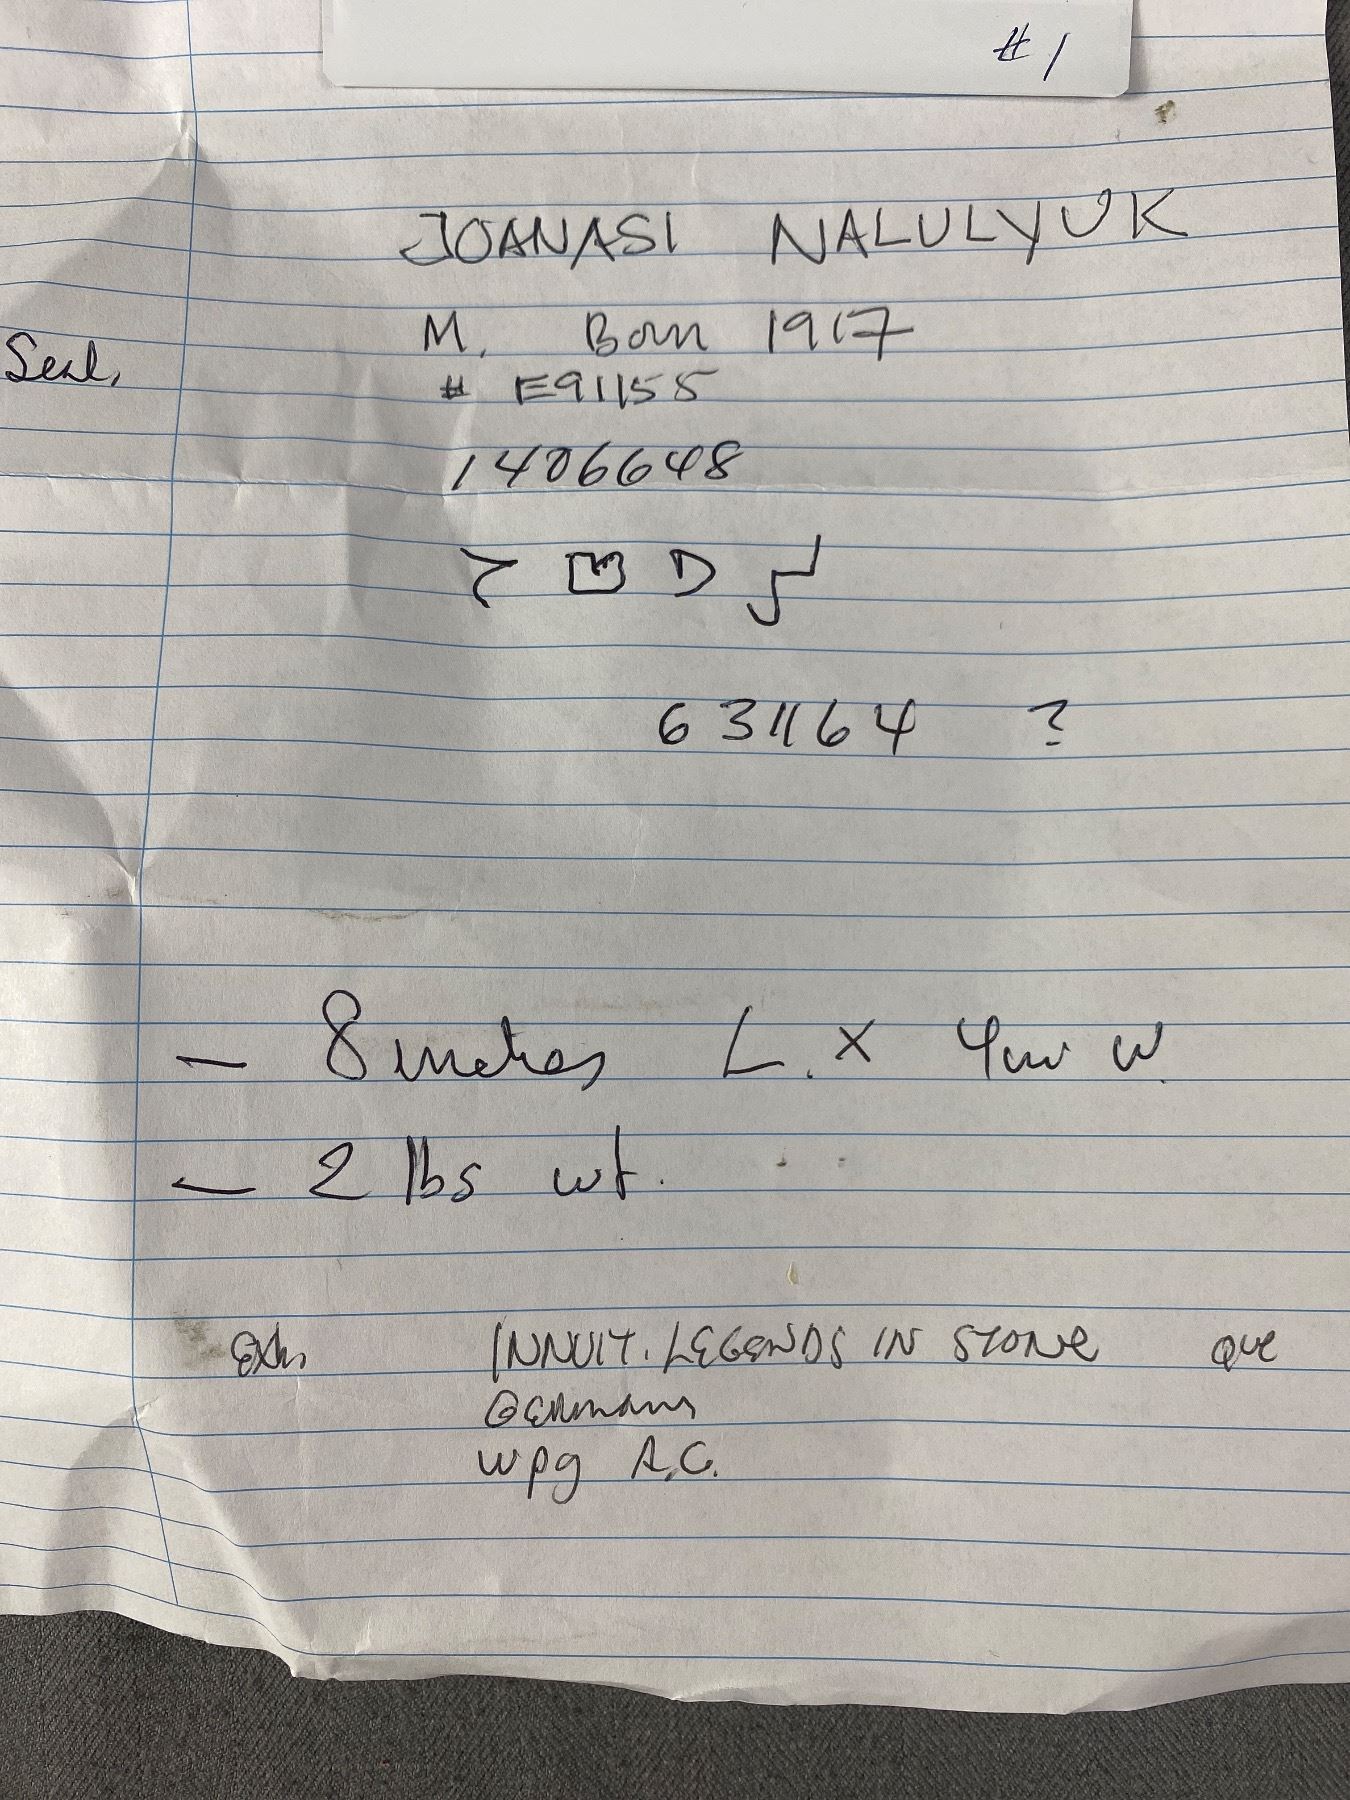 #1
JOANASI NALULYUK
M. Born 1917
Seal,
# E91155
1406648
631164 ?
— 8 inches L. x 4in W.
— 2 lbs wt.
Exh INNUIT. LEGENDS IN STONE QUE
Germany
Wpg A.G.